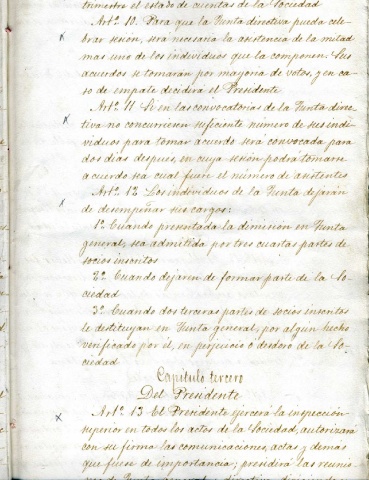 trimestre el estado de cuentas de la Sociedad
Artº 10. Para que la Junta directiva pueda cele-
brar sesion, será necesaria la asistencia de la mitad
mas uno de los individuos que la componen. Sus
acuerdos se tomarán por mayoria de votos, y en ca-
so de empate decidirá el Presidente
Artº 11 Si en las convocatorias de la Junta direc-
tiva no concurriesen suficiente número de sus indi-
viduos para tomar acuerdo será convocada para
dos dias despues, en cuya sesion podrá tomarse
acuerdo sea cual fuere el número de asistentes
Artº 12 Los individuos de la Junta dejarán
de desempeñar sus cargos:
1º Cuando presentada la dimision en Junta
general, sea admitida por tres cuartas partes de
socios inscritos
2º Cuando dejaren de formar parte de la So-
ciedad
3º Cuando dos terceras partes de socios inscritos
le destituyan en Junta general, por algún hecho
verificado por él, en perjuicio o desdoro de la So-
ciedad
Capitulo tercero
Del Presidente
Artº 13 El Presidente ejercerá la inspección
superior en todos los actos de la Sociedad, autorizará
con su firma las comunicaciones, actas y demás
que fuese de importancia; presidirá las reunio-
nes de Junta general y directiva